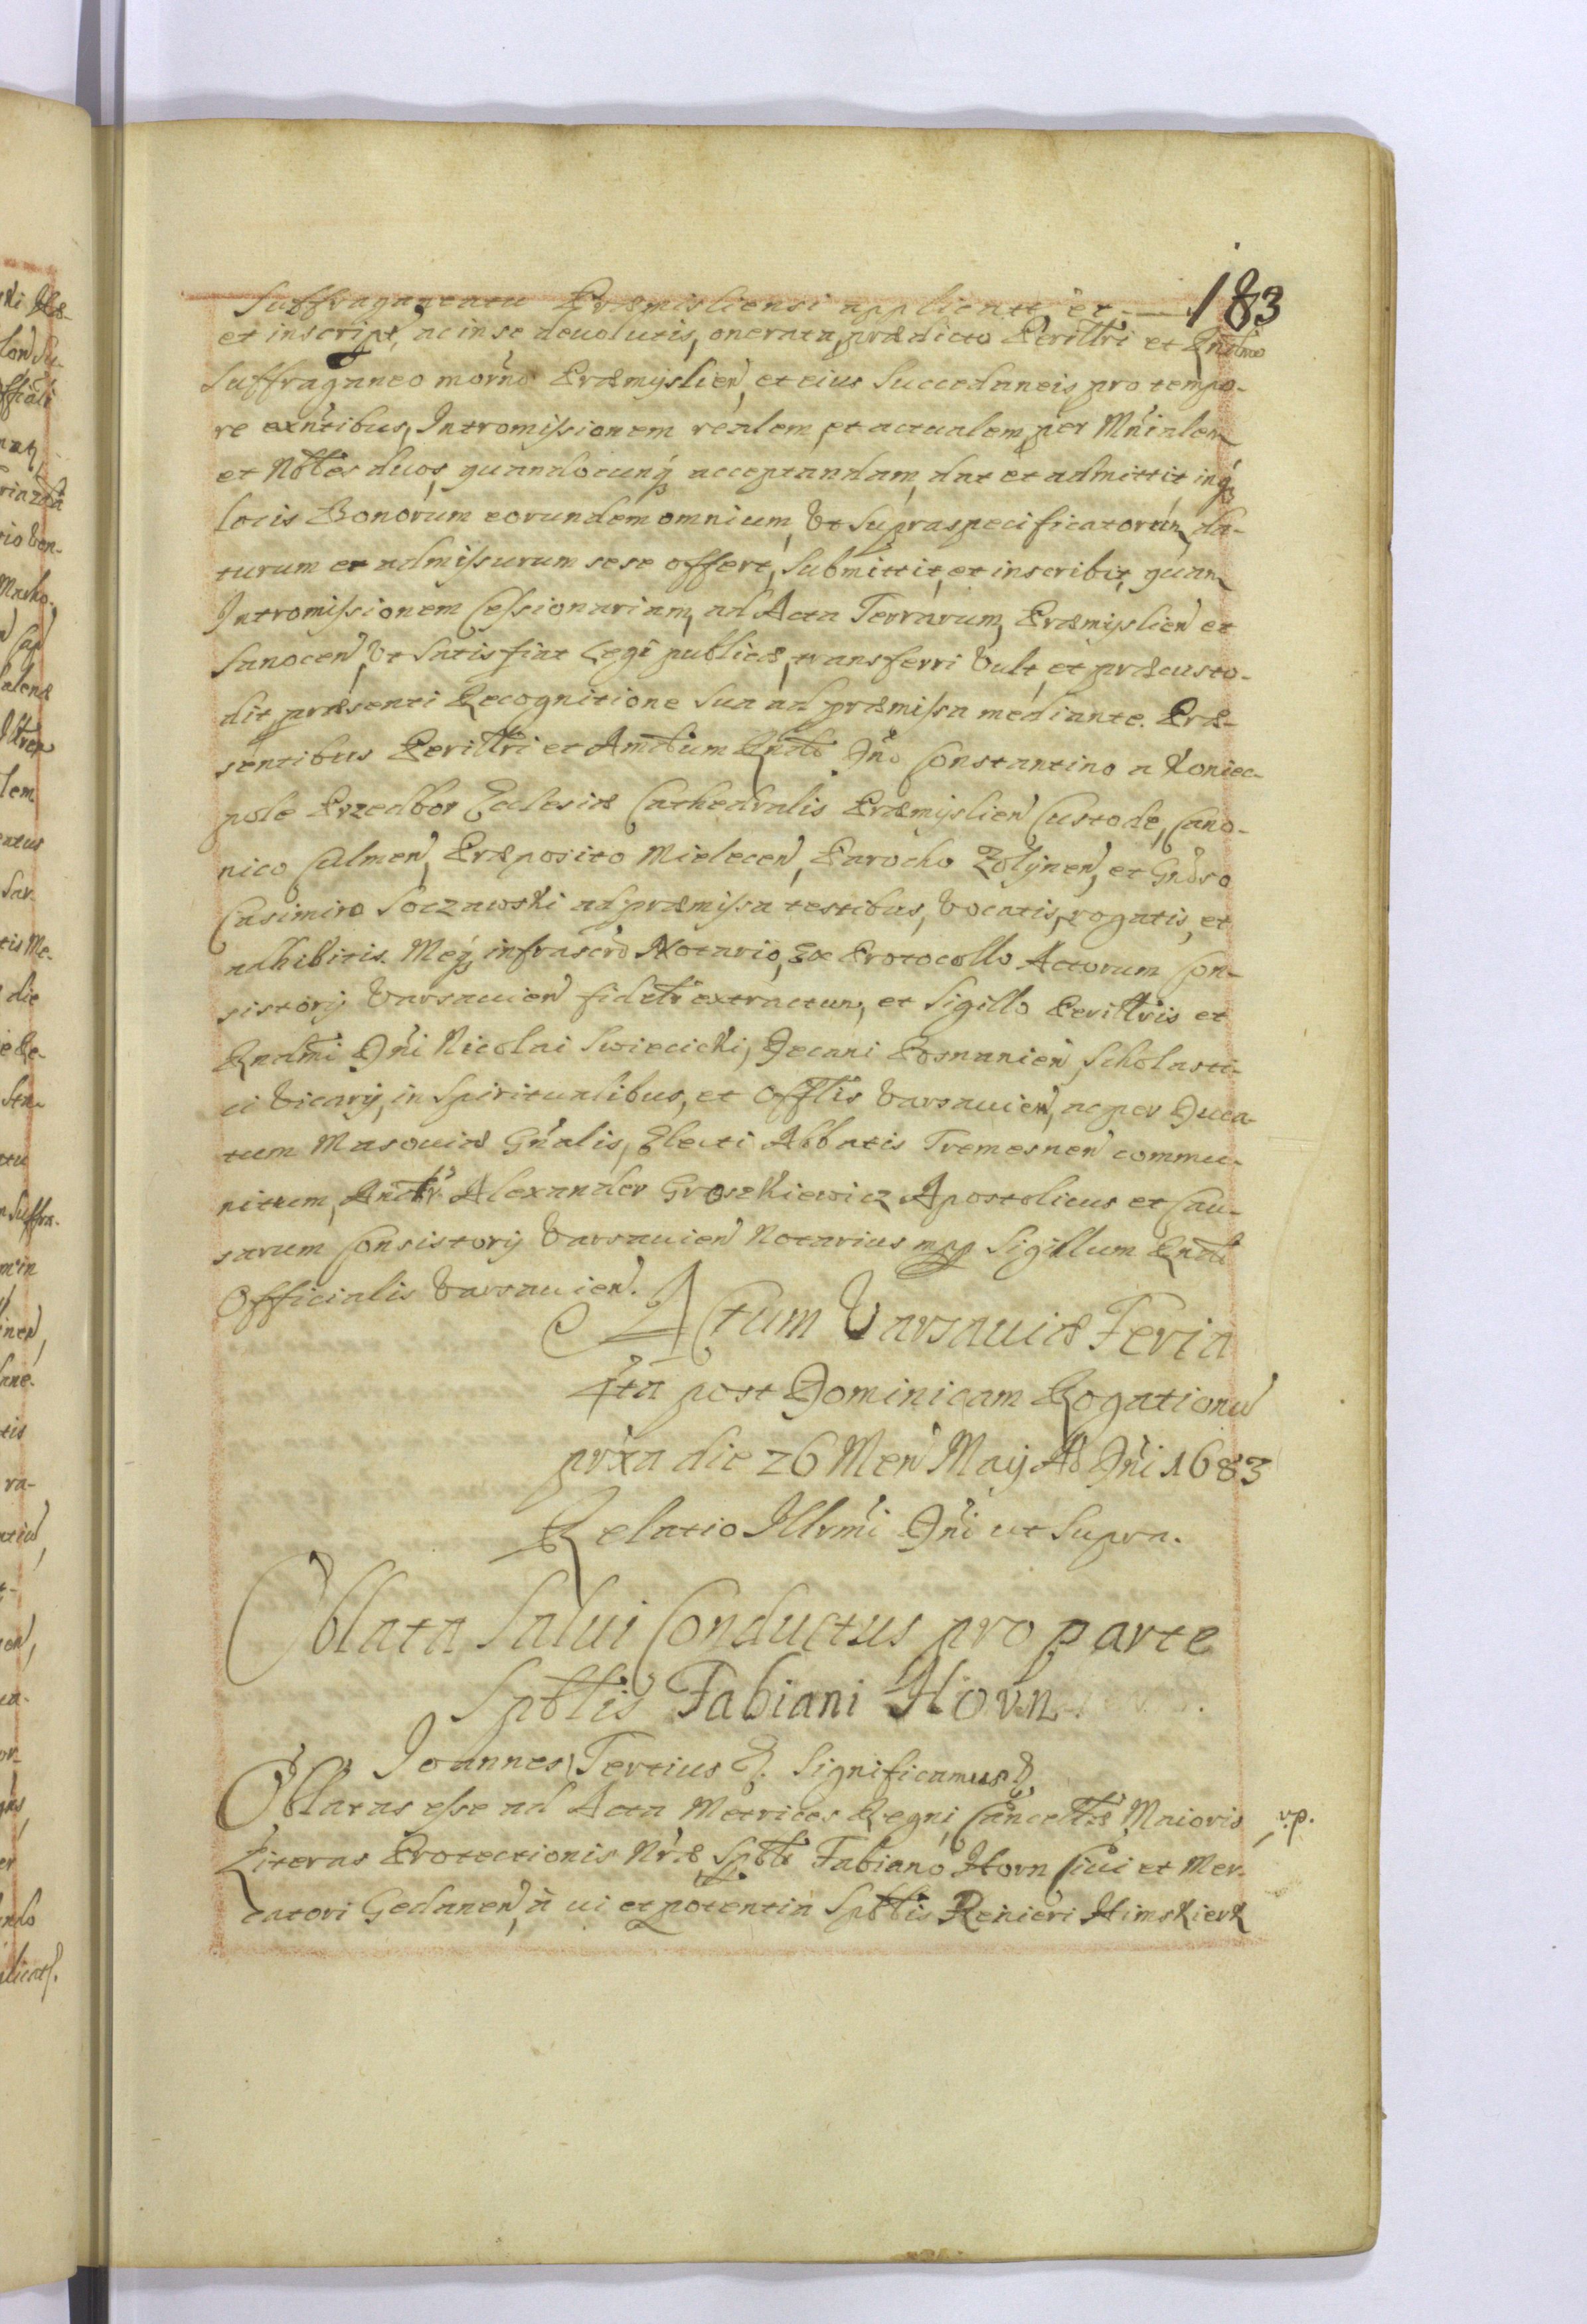 183
Suffraganeatu Præmisliensi applicatt, et
et inscript, ac in se deuolutis, onerata, prædicto Perilltri et Rndmo
Suffraganeo morno Præmyslien, et eius Succedaneis pro tempo-
re exntibus, Intromissionem realem, et actualem, per Mnialem
et Nobles duos, quandocunq acceptandam, dat et admittit, inq
locis Bonorum eorundem omnium, Vt Supraspecificatorum, da-
turum et admissurum sese offert, Submittit, et inscribit, quam
Intromissionem Cessionariam, ad Acta Terrarum, Præmyslien et
Sanocen, Vt Satisfiat Legi publicæ, transferri Vult, et præcusto-
dit, præsenti Recognitione Sua ad præmissa mediante. Præ-
sentibus Perilltri et Amdum Rndo Dno Constantino a Koniec-
pole Przedbor Ecclesiæ Cathedralis Præmyslien Custode, Cano-
nico Culmen, Præposito Mielecen, Parocho Zolynen, et Gnoso
Casimiro Soczawski ad præmissa testibus, Vocatis, rogatis, et
adhibitis. Meq, infrascro Notario, Ex Protocollo Actorum Con-
sistorij Varsauien fidelr extractum, et Sigillo Perilltris et
Rndmi Dni Nicolai Swiecicki, Decani Posnanien Scholasti-
ci Vicarij, in Spiritualibus, et Offtlis Varsauien, ac per Duca-
tum Masouiæ Gnalis, Electi Abbatis Tremesnen commu-
nitum, Alexander Groszkiewicz Apostolicus et Cau-
sarum Consistorij Varsauien Notarius mpp Sigillum Rndi
Officialis Varsauien.
Actum Varsauiæ Feria
4ta post Dominicam Rogationu
prxa die 26 Men Maij Ao Dni 1683
Relatio Illrmi Dni ut Supra.
Oblata Salui Conductus pro parte
Spttlis Fabiani Horn.
Joannes Tertius &. Significamus &
Oblatas esse ad Acta Metrices Regni, Cancellæ Maioris
v.p.
Literas Protectionis Nræ Sptti Fabiano Horn Ciui et Mer-
catori Gedanen, à ui et potentia Spttlis Renieri Himskierk